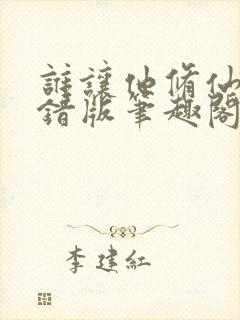 誰讓他脩仙
錯版筆趣閣
李建紅